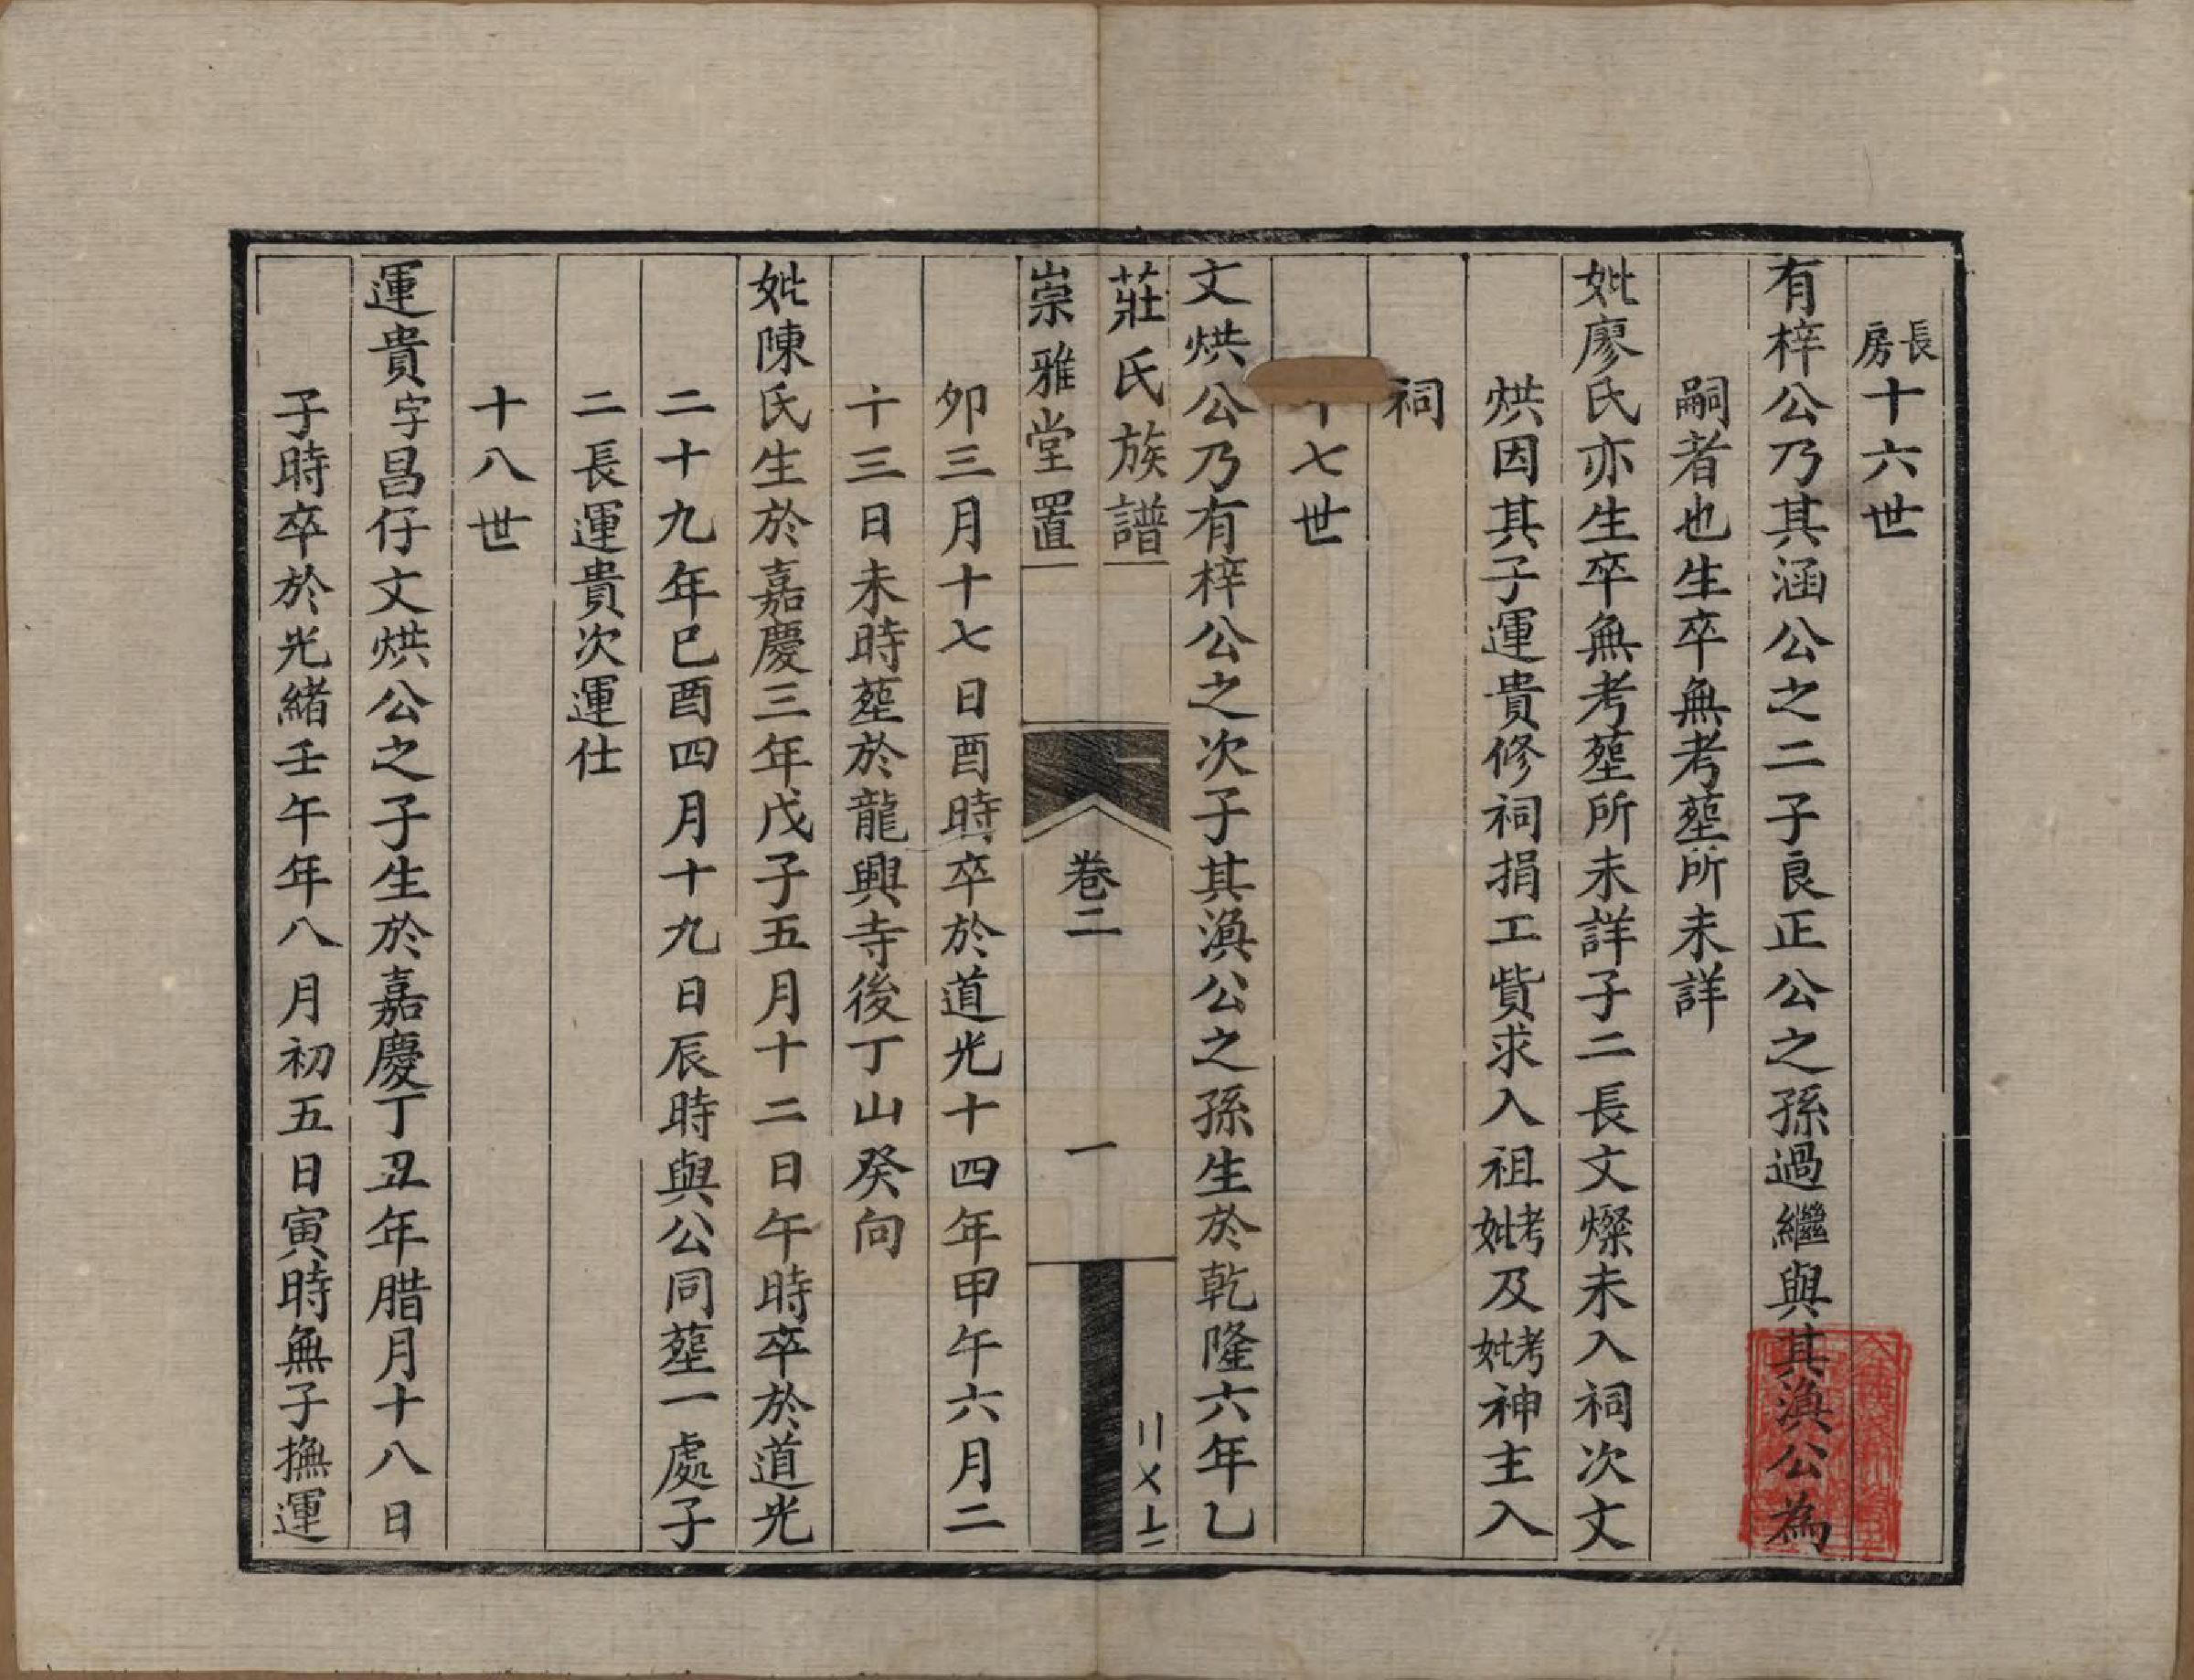 長房十六世
有梓公乃其涵公之二子良正公之孫過繼與其渙公為
嗣者也生卒無考塟所未詳
妣廖氏亦生卒無考塟所未詳子二長文燦未入祠次文
烘因其子運貴修祠捐工貲求入祖考妣及考妣神主入
祠
十七世
文烘公乃有梓公之次子其渙公之孫生於乾隆六年乙
莊氏族譜
崇雅堂置
卷二
一
卯三月十七日酉時卒於道光十四年甲午六月二
十三日未時塟於龍興寺後丁山癸向
妣陳氏生於嘉慶三年戊子五月十二日午時卒於道光
二十九年巳酉四月十九日辰時與公同塟一處子
二長運貴次運仕
十八世
運貴字昌仔文烘公之子生於嘉慶丁丑年腊月十八日
子時卒於光緒壬午年八月初五日寅時無子撫運